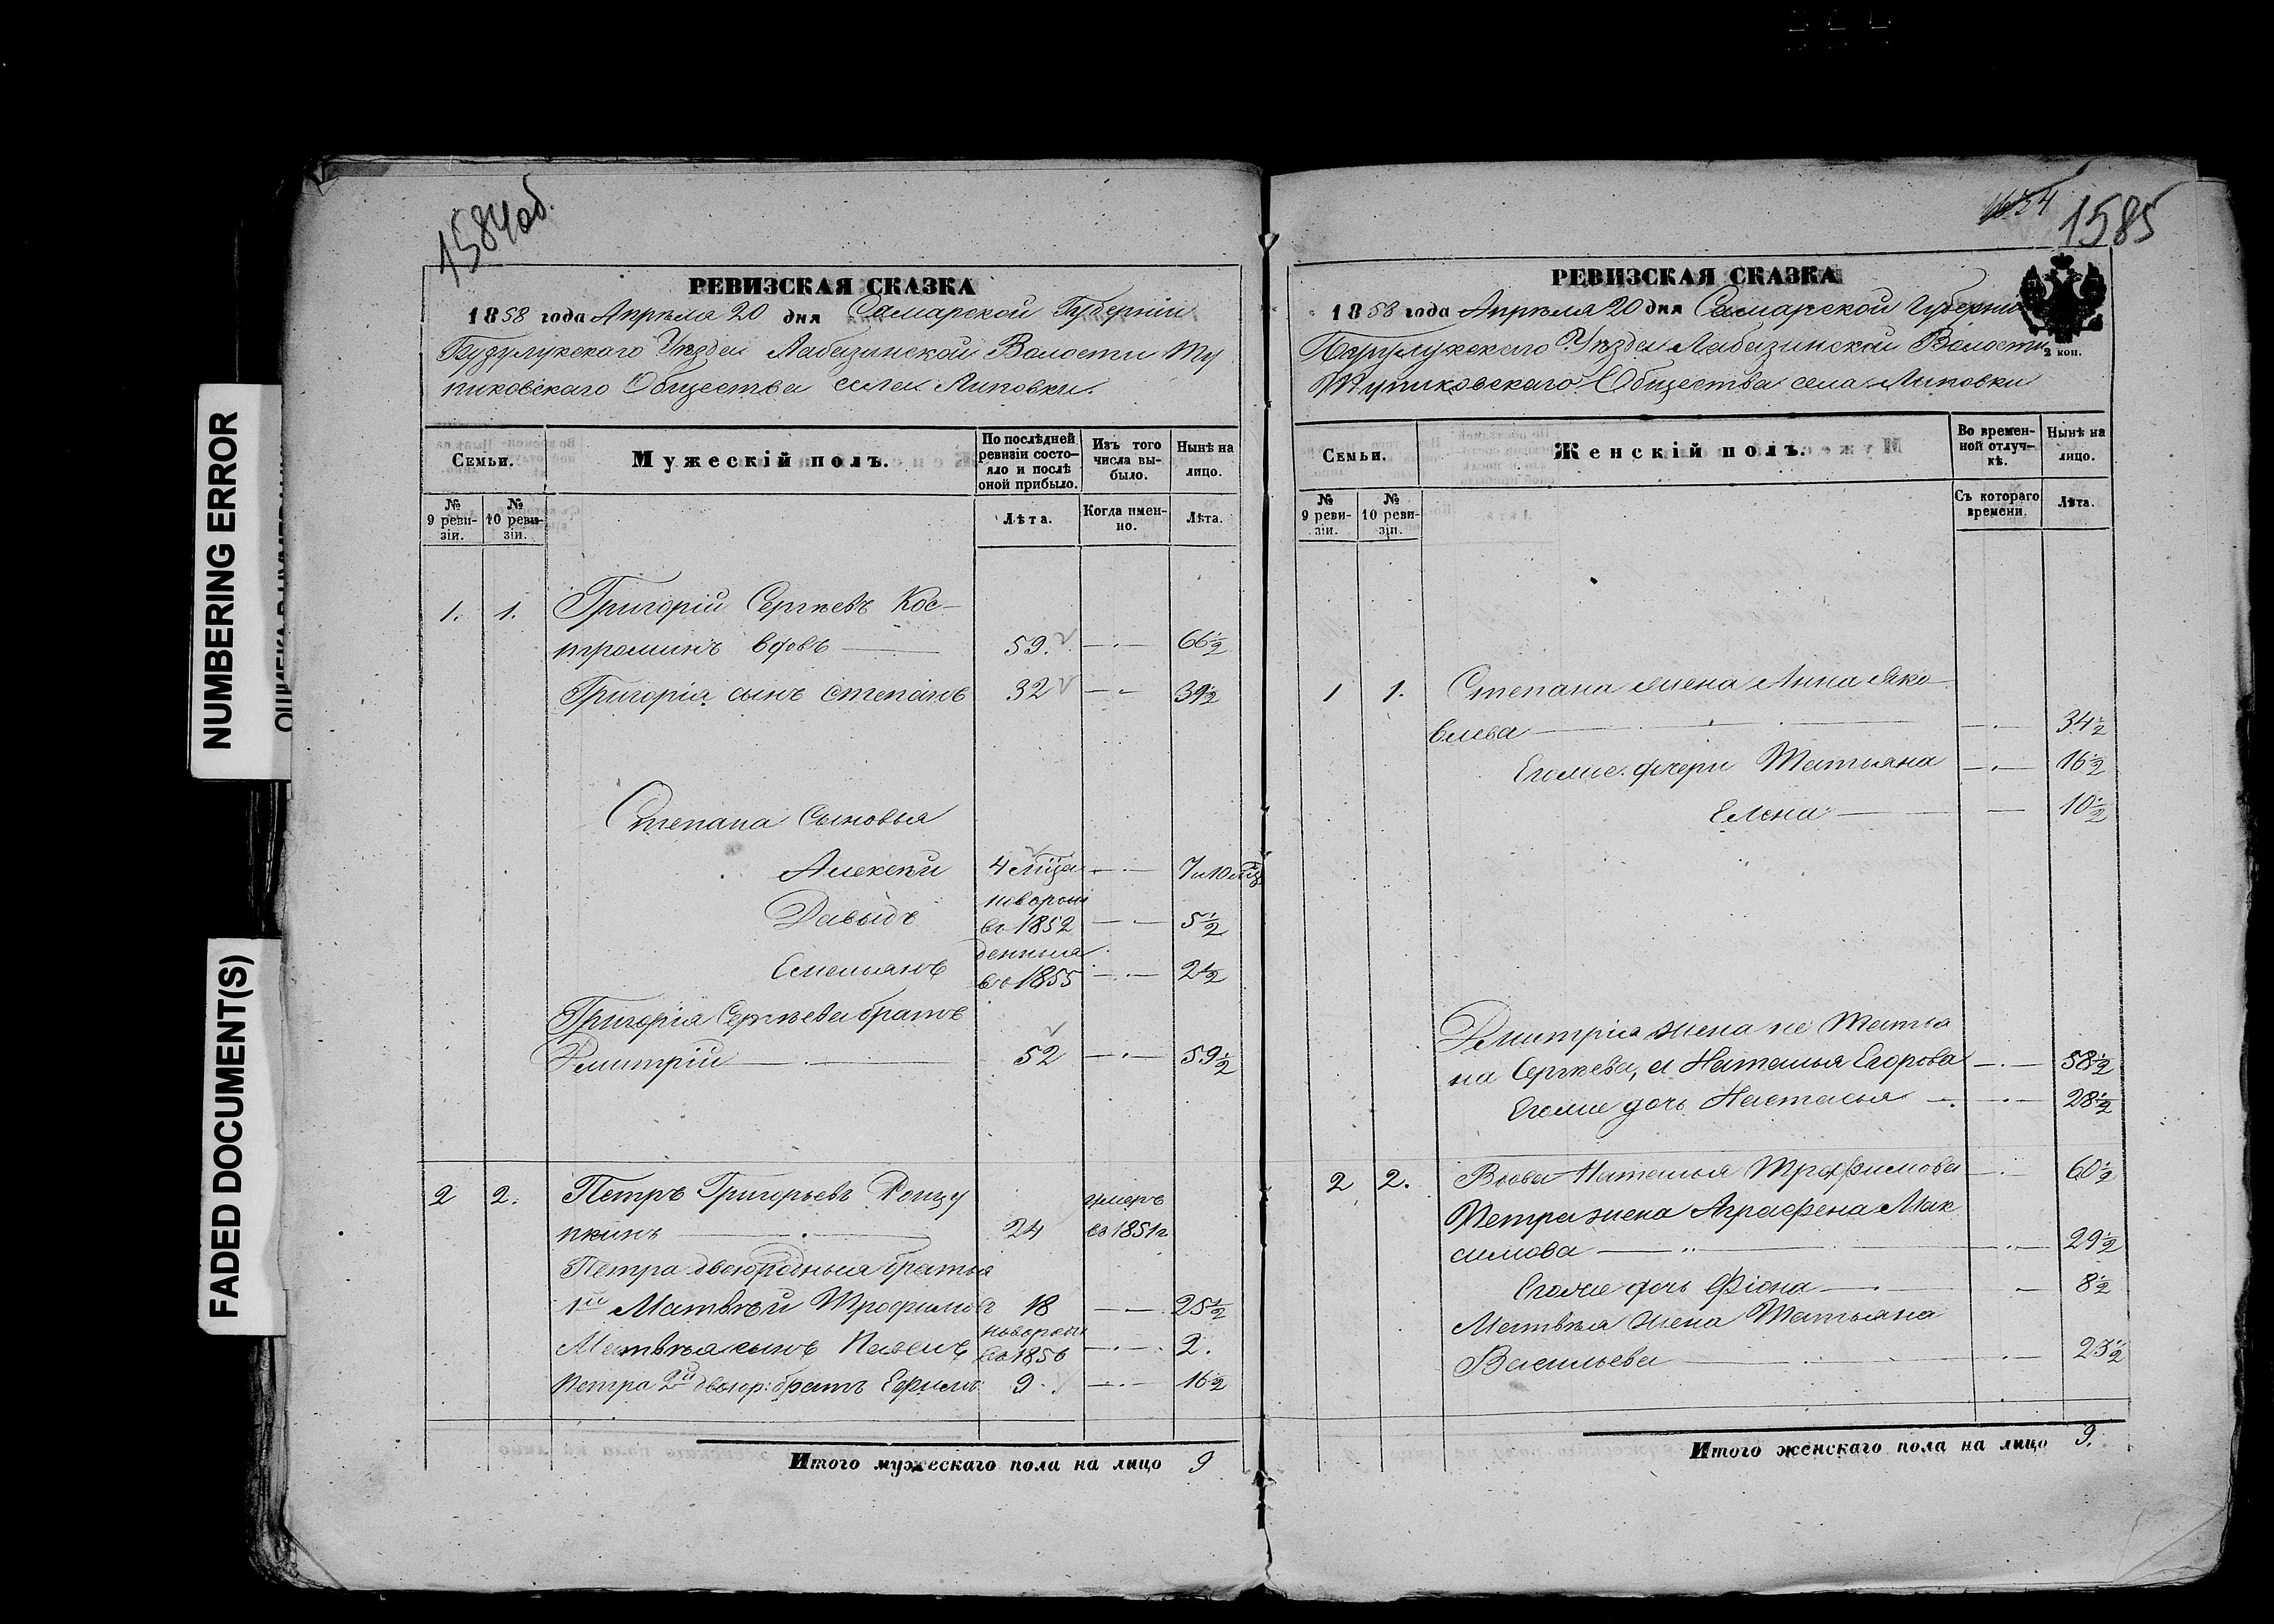 NUMBERING ERROR
FADED DOCUMENT(S)
1584об.
РЕВИЗСКАЯ СКАЗКА
1858 года Апрѣля 20 дня Самарской Губерніи
Бузулукскаго Уѣзда Лабазинской Волости Ту
пиковскаго Общества села Липовки.
Семьи.
Мужескій полъ.
По послѣдней ревизіи состояло и послѣ оной прибыло.
Изъ того числа выбыло.
Нынѣ на лицо.
№ 9 ревизіи.
№ 10 ревизіи.
Лѣта.
Когда именно.
Лѣта.
1. 1. Григорій Сергѣевъ Кос-
троминъ вдовъ 59. 66½
Григорія сынъ Степанъ 32 39½
Степана сыновья
Алексѣй 4 мѣца 7 и 10 мѣц
Давыдъ новорож въ 1852 5½
Емельянъ денныя въ 1855 2½
Григорія Сергѣева братъ
Дмитрій 52 59½
2 2. Петръ Григорьевъ Донцу
пкинъ 24 умеръ въ 1851г
Петра двоюродныя братья
1й Матвѣй Трофимовъ 18 25½
Матвѣя сынъ Павелъ новорож въ 1856 2.
Петра 2й двоюр: братъ Ефимъ 9. 16½
Итого мужескаго пола на лицо 9
1654
1585
РЕВИЗСКАЯ СКАЗКА
1858 года Апрѣля 20 дня Самарской Губерніи
2 коп.
Бузулукскаго Уѣзда Лабазинской Волости
Тупиковскаго Общества села Липовки
Семьи.
Женскій полъ.
Во временной отлучкѣ.
Нынѣ на лицо.
№ 9 ревизіи.
№ 10 ревизіи.
Съ котораго времени.
Лѣта.
1 1. Степана жена Анна Яко
влева 34½
Егоже дочери Татьяна 16½
Елена 10½
Дмитрія жена не Татья
на Сергѣева, а Наталья Егорова 58½
Егоже дочь Настасья 28½
2 2. Вдова Наталья Трофимова 60½
Петра жена Аграфена Мак
симова 29½
Егоже дочь Фіона 8½
Матвѣя жена Татьяна
Васильева 23½
Итого женскаго пола на лицо 9.